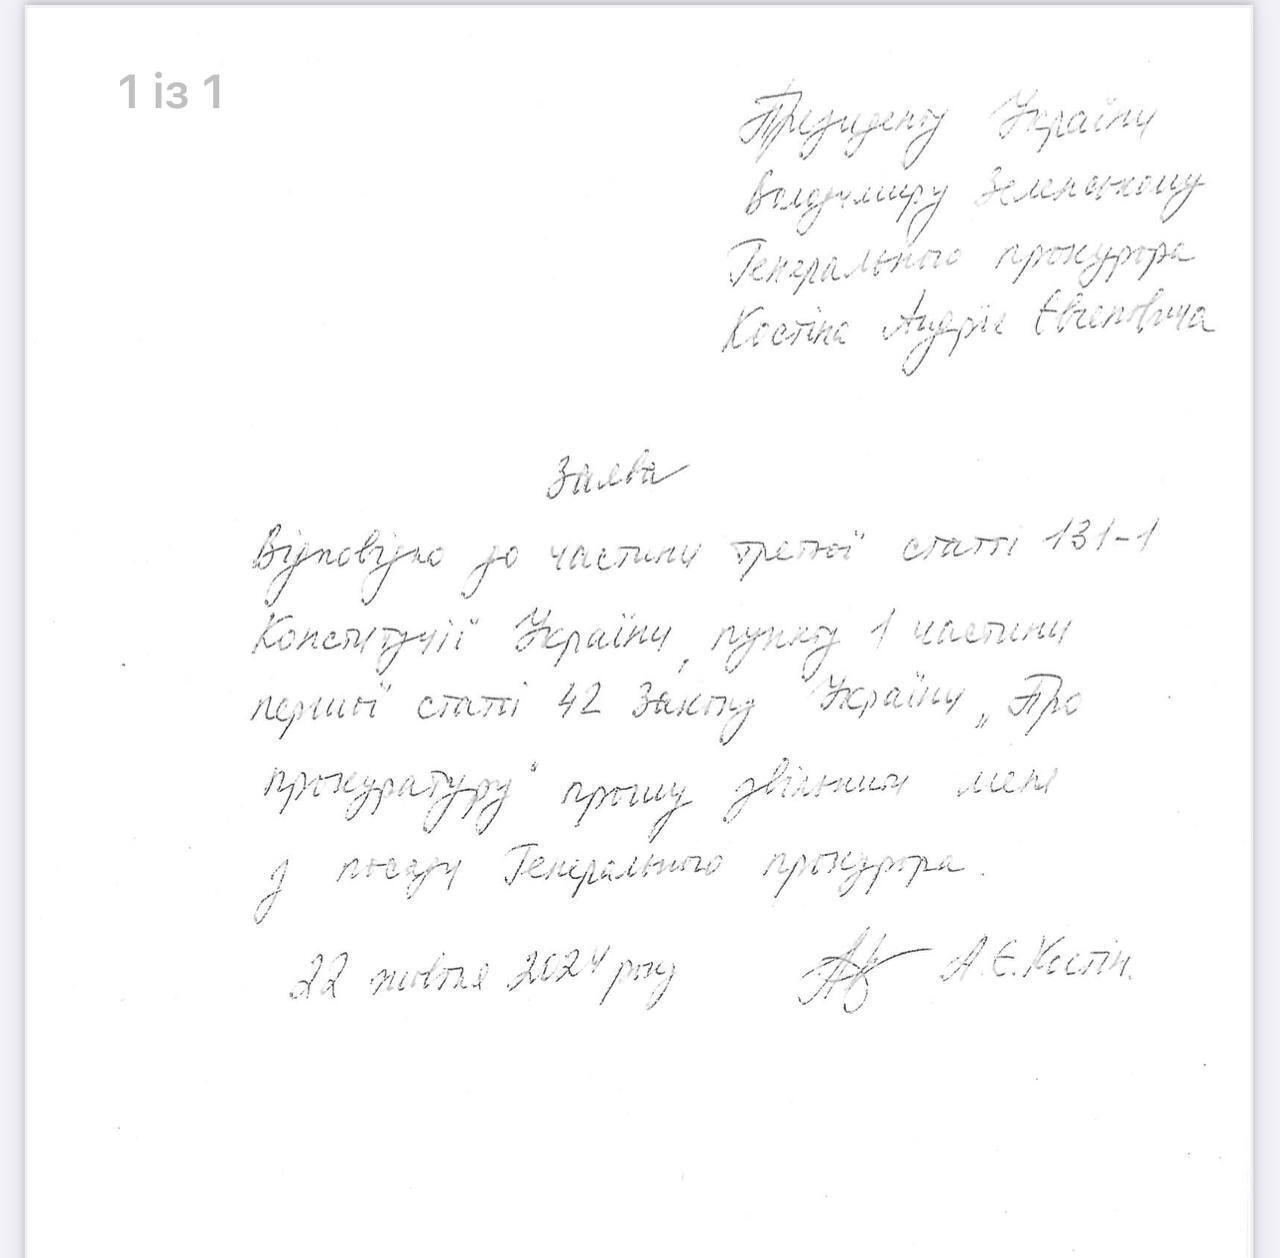 1 із 1
Президенту України
Володимиру Зеленському
Генерального прокурора
Костіна Андрія Євгеновича
Заява
Відповідно до частини третьої статті 131-1
Конституції України, пункту 1 частини
першої статті 42 Закону України „Про
прокуратуру“ прошу звільнити мене
з посади Генерального прокурора.
22 жовтня 2024 року А.Є.Костін.